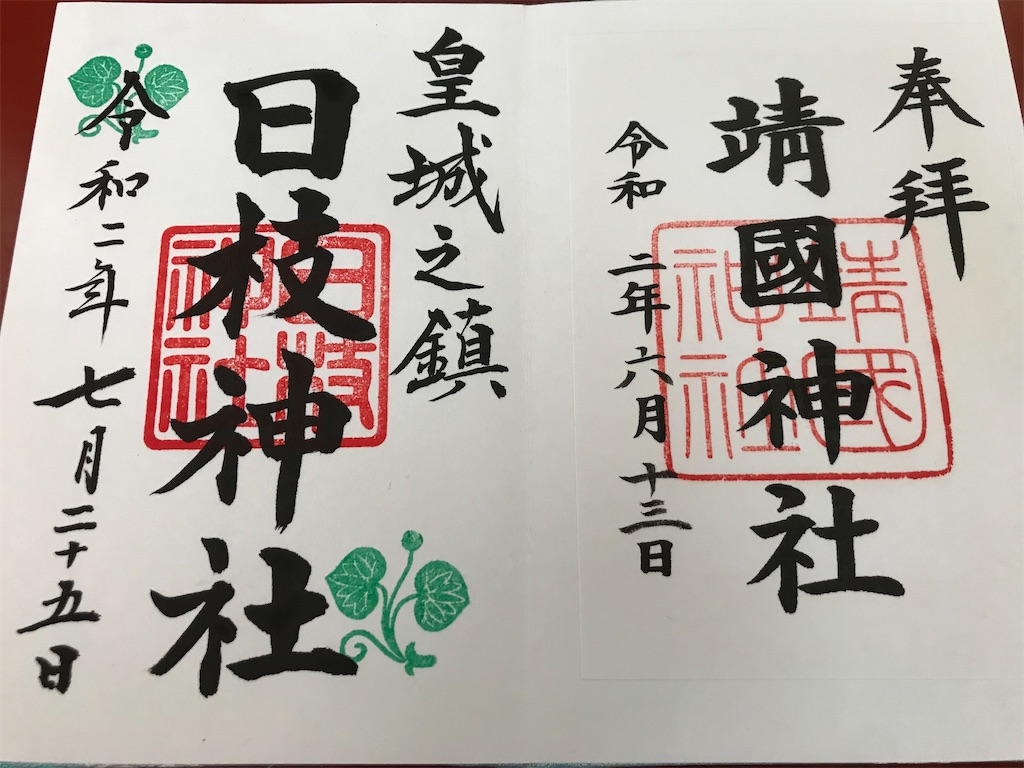 奉拝
靖國神社
靖國神社
令和二年六月十三日
皇城之鎮
日枝神社
日枝神社
令和二年七月二十五日